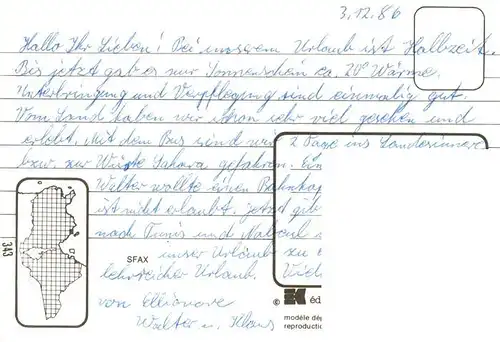 3.12.86
Hallo Ihr Lieben! Bei unserem Urlaub ist Halbzeit.
Bis jetzt gab es nur Sonnenschein ca. 20° Wärme.
Unterbringung und Verpflegung sind einmalig gut.
Vom Land haben wir schon sehr viel gesehen und
erlebt. Mit dem Bus sind wir 2 Tage ins Landesinnere
bzw. zur Wüste Sahara gefahren. Ein
Walter wollte einen Bahnhof
ist nicht erlaubt. Jetzt
nach Tunis und
unser Urlaub zu
SFAX
lehrreicher Urlaub.
von Ellionore
Walter u. Klaus
343
© éd
modèle dép
reproductio